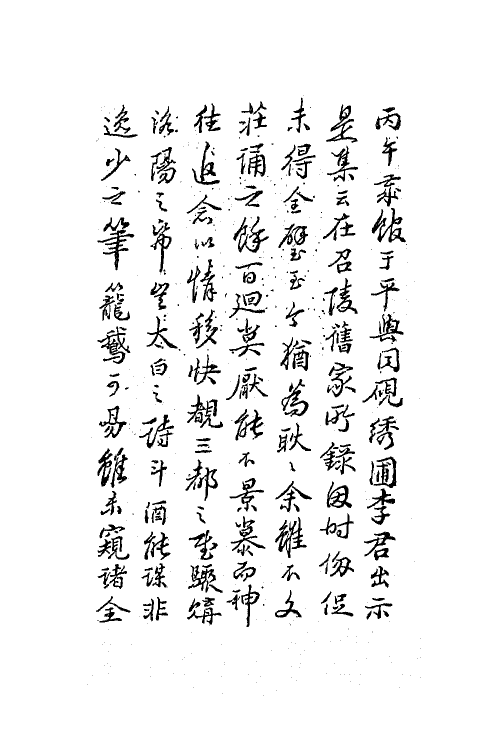 丙午忝館于平輿同硯綉圃李君出示
是集云在召陵舊家所錄因時匆促
未得全璧至今猶為耿〻余雖不文
莊誦之餘百迴莫厭能不景慕而神
往返念以情移快覩三都之駿購
洛陽之帋望太白之詩斗酒能謀非
逸少之筆籠鵝可易雖未窺諸全